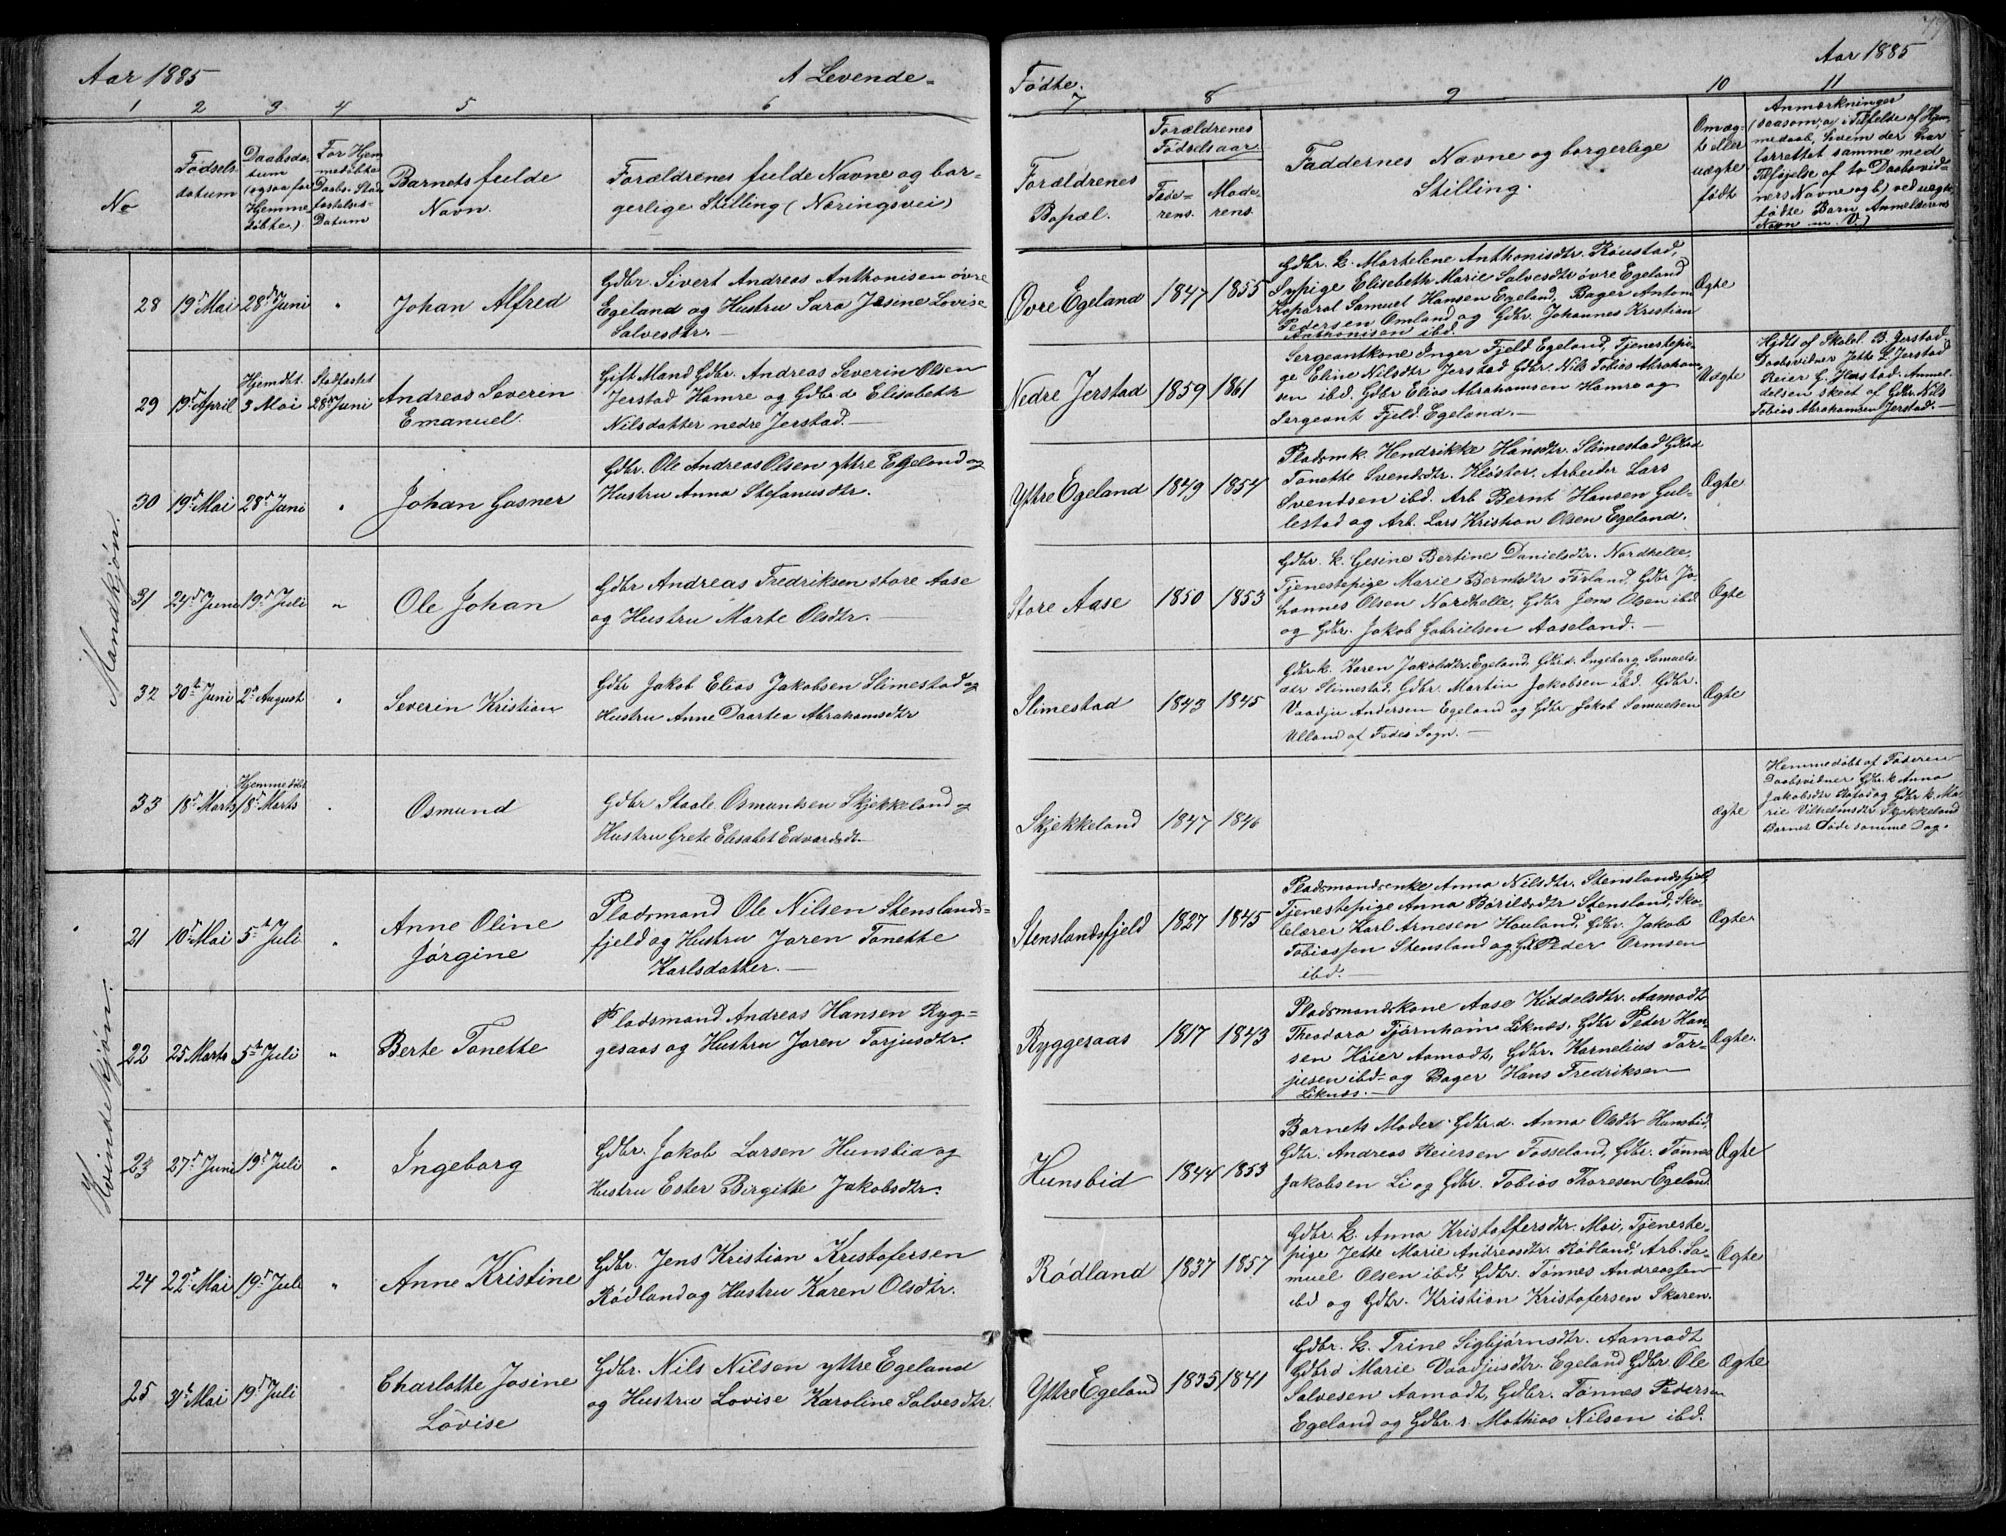 77
Aar 1885
A Levende-
Fødte.
Aar 1885
1 2 3 4 5 6
7 8 9 10 11
No
Fødsels-
datum
Daabsda-
tum
(ogsaa for
Hjemme
døbte)
For Hjem
medøbte
Daabs Stad
fæstelses-
Datum
Barnets fulde
Navn.
Forældrenes fulde Navne og bor-
gerlige Stilling (Næringsvei)
Forældrenes
Bopæl.
Forældrenes
Fødselsaar
Fade-
rens.
Mode-
rens.
Faddernes Navne og borgerlige
Stilling.
Om æg-
te eller
uægte
født
Anmærkninger
(saasom, a) i Tilfælde af Hjem-
medaab, hvem der har
forrettet samme med
Tilføjelse af to Daabsvid-
ners Navne og b) ved uægte
fødte Børn Anmelderens
Navn m. V.)
Mandkjøn.
28 19d Mai 28d Juni " Johan Alfred
Gdbr. Sivert Andreas Anthonisen øvre
Egeland og Hustru Sara Josine Lovise
Salvesdtr.
Øvre Egeland 1847 1855
Gdbr. k. Martelene Anthonisdtr. Røiestad,
Sypige Elisabeth Marie Salvesdtr øvre Egeland
Koporal Samuel Hansen Egeland, Bager Anton
Pedersen Omland og Gdbr. Johannes Kristian
Anthonisen ibd.
Ægte
29 19d April Hjemdbt. 3 Mai Stadfæstet 28de Juni
Andreas Severin
Emanuel.
Gift Mand Gdbr. Andreas Severin Olsen
Jerstad Hamre og Gdbr d Elisabeth
Nilsdatter nedre Jerstad.
Nedre Jerstad 1859 1861
Sergeantkone Inger Fjeld Egeland, Tjenestepi-
ge Eline Nilsdtr Jerstad Gdbr. Nils Tobias Abraham-
sen ibd. Gdbr Elias Abrahamsen Hamre og
Sergeant Fjeld. Egeland.
Uægte
Hjdbt af Skolel. B. Jerstad
Daabsvidner Jette L Jerstad
Reier G. Jerstad. Anmel-
delsen skeet af Gdbr. Nils
Tobias Abrahamsen Jerstad.
30 19d Mai 28d Juni " Johan Gosner
Gdbr. Ole Andreas Olsen yttre Egeland og
Hustru Anna Stefanusdtr.
Yttre Egeland 1849 1854
Pladsmk. Hendrikke Hansdtr. Slimestad Gdbrd
Tonette Svendsdtr. Kleistor. Arbeider Lars
Svendsen ibd. Arb Bernt Hansen Gul-
lestad og Arb. Lars Kristian Olsen Egeland.
Ægte
31 24d Juni 19d Juli " Ole Johan
Gdbr Andreas Fredriksen store Aase
og Hustru Marte Olsdtr.
Store Aase 1850 1853
Gdbr. k. Gesine Bertine Danielsdtr. Nordhelle,
Tjenestepige Marie Berntsdtr Førland, Gdbr Jo-
hannes Olsen Nordhelle, Gdbr Jens Olsen ibd
og Gdbr. Jakob Gabrielsen Aaseland.
Ægte
32 30t Juni 2d August " Severin Kristian
Gdbr Jakob Elias Jakobsen Slimestad og
Hustru Anne Daartea Abrahamsdtr
Slimestad 1843 1845
Gdbr k. Karen Jakobsdtr. Egeland, Gdbrd. Ingeborg Samuels-
dtr Slimestad, Gdbr. Martin Jakobsen ibd. Gdbr.
Vaadju Andersen Egeland og Gdbr Jakob Samuelsen
Ulland af Fedes Sogn.
Ægte
33 18d Marts Hjemmedøbt 18d Marts " Osmund
Gdbr Staale Osmundsen Skjekkeland og
Hustru Grete Elisabet Edvardsdt.
Skjekkeland 1847 1846
Ægte
Hemmedøbt af Faderen
Daabsvidner Gdbr. k Anna
Jakobsdtr Røfod og Gdbr k. Ma-
rie Vilhelmsdtr Skjekkeland
Barnet døde samme Dag.
Kvindekjøn.
21 10d Mai 5t Juli " Anne Oline
Jørgine
Pladsmand Ole Nilsen Stenslands-
fjeld og Hustru Joren Tonette
Karlsdatter.
Stenslandsfjeld 1827 1845
Pladsmandsenke Anna Nilsdtr. Stenslandsfjeld,
Tjenestepige Anna Bårildsdtr Stensland, Sko-
lelærer Karl Arnesen Houland, Gdbr. Jakob
Tobiassen Stensland og Gdbr Peder Ormsen
ibd.
Ægte
22 25 Marts 5t Juli " Berte Tonette
Pladsmand Andreas Hansen Ryg-
gesaas og Hustru Joren Torjusdtr.
Ryggesaas 1817 1843
Pladsmandskone Aase Kiddelsdtr. Aamodt
Theodora Tjørnhom Liknes, Gdbr Peder Han-
sen Høier Aamodt, Gdbr. Kornelius Tor-
jusen ibd og Bager Hans Fredriksen
Liknes.
Ægte.
23 27d Juni 19d Juli " Ingeborg
Gdbr. Jakob Larsen Hunsbid og
Hustru Ester Birgitte Jakobsdtr.
Hunsbid 1844 1853
Barnets Moder Gdbr. d. Anna Olsdtr Hunsbid,
Gdbr. Andreas Reiersen Fosseland, Gdbr. Tønnes
Jakobsen Li og Gdbr. Tobias Thoresen Egeland.
Ægte
24 22d Mai 19d Juli " Anne Kristine
Gdbr. Jens Kristian Kristofersen
Rødland og Hustru Karen Olsdtr.
Rødland 1837 1857
Gdbr. k. Anna Kristoffersdtr. Moi, Tjeneste-
pige Jette Marie Andreasdtr. Rødland, Arb. Sa-
muel Olsen ibd, Gdbr. Tønnes Andreassen
ibd og Gdbr. Kristian Kristofersen Skaren.
Ægte
25 31t Mai 19d Juli Charlotte Josine
Lovise
Gdbr. Nils Nilsen yttre Egeland
og Hustru Lovise Karoline Salvesdtr.
Yttre Egeland 1835 1841
Gdbr. k. Trine Sigbjørnsdtr. Aamodt
Gdbrd Marie Vaadjusdtr. Egeland Gdbr. Ole
Salvesen Aamodt, Gdbr. Tønnes Pedersen
Egeland og Gdbr. s. Mathias Nilsen ibd.
Ægte